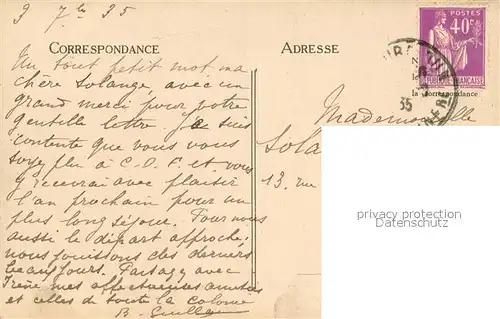 9 7bre 35
CORRESPONDANCE
Un tout petit mot ma
chère Solange, avec un
grand merci pour votre
gentille lettre. Je suis
contente que vous vous
soyez plu à C.D.F. et vous
y recevrai avec plaisir
l'an prochain pour un
plus long séjour. Pour nous
aussi le départ approche,
nous jouissons des derniers
beaux jours. Partagez avec
Irène mes affectueuses amitiés
et celles de toute la colonie
B.
ADRESSE
POSTES
40c
FRANÇAISE
la correspondance
35
Mademoiselle
Sola
13, rue
property protection
Datenschutz